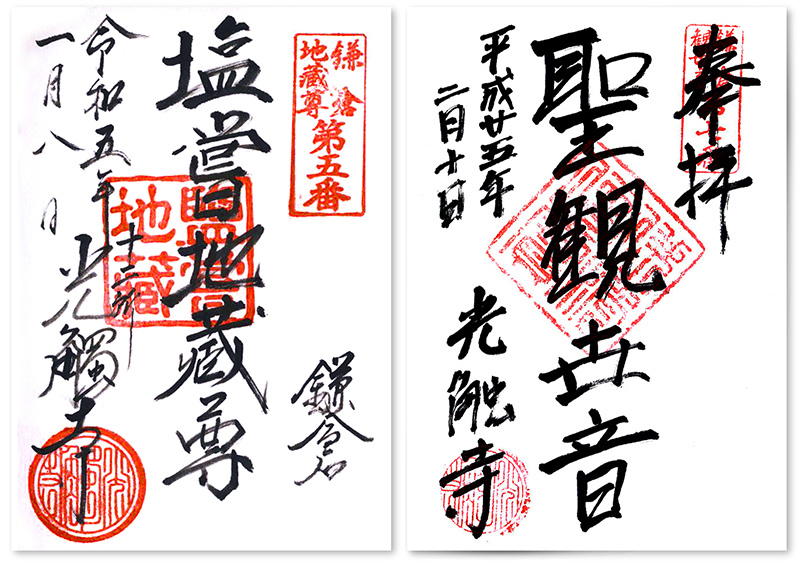 鎌倉
地蔵尊
第五番
鎌倉
塩嘗地蔵尊
地藏
令和五年
一月八日
十二所
光觸寺
奉拝
聖観世音
平成廿五年
二月十日
光触寺